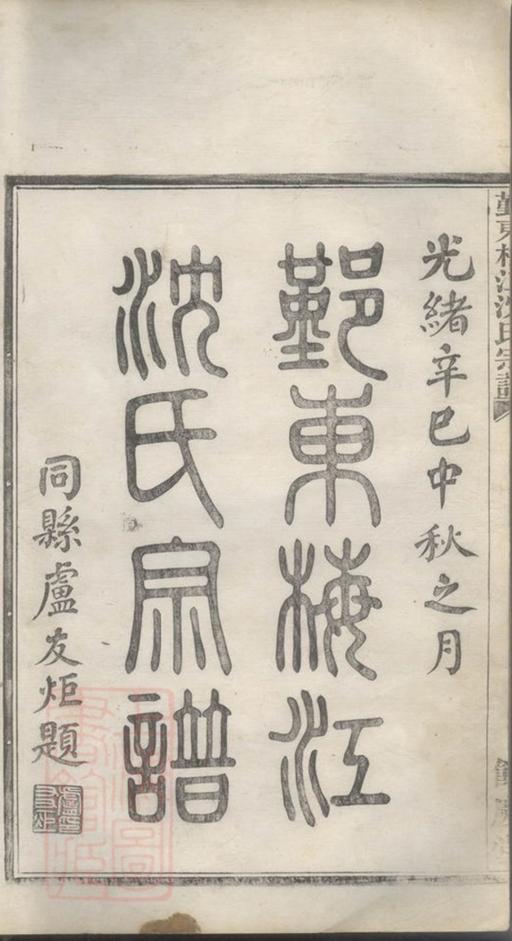 鄞東梅江沈氏宗譜
光緒辛巳中秋之月
鄞東梅江
沈氏宗譜
同縣盧友炬題